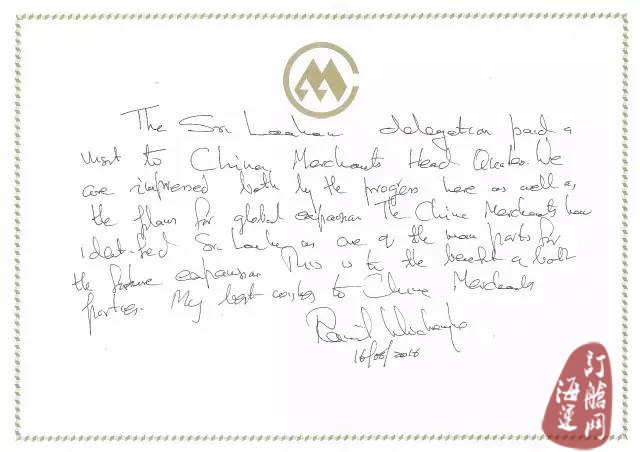 The Sri Lankan delegation paid a
visit to China Merchants Head Quarters. We
are impressed both by the progress here as well as
the plans for global expansion. The China Merchants have
identified Sri Lanka as one of the main ports for
the future expansion. This is to the benefit of both
parties. My best wishes to China Merchants
Ranil Wickremesinghe
16/08/2016
訂艙网
海運